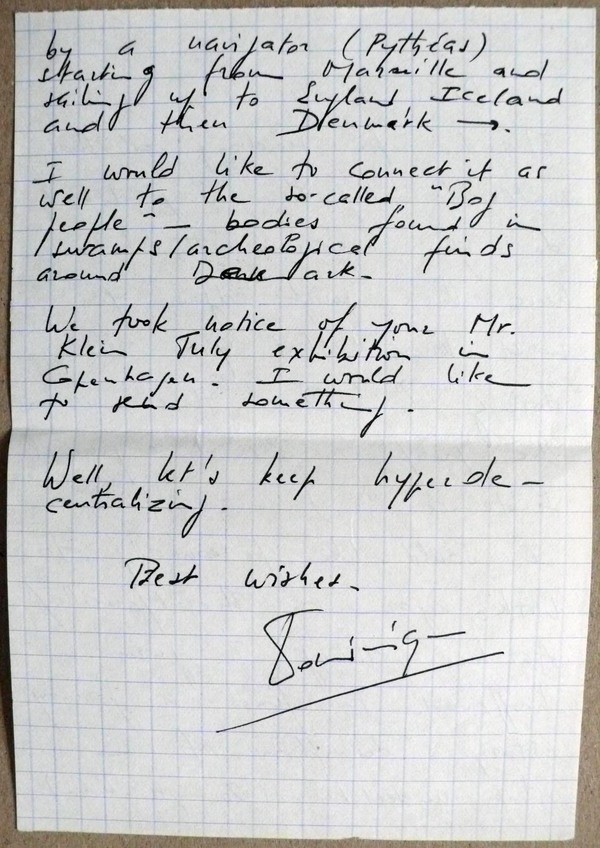 by a navigator (Pythéas)
starting from Marseille and
sailing up to England Iceland
and then Denmark →.
I would like to connect it as
well to the so-called "Bog
people" – bodies found in
swamps/archeological finds
around Denmark.
We took notice of your Mr.
Klein July exhibition in
Copenhagen. I would like
to send something.
Well, let's keep hyperde-
centralizing.
Best wishes.